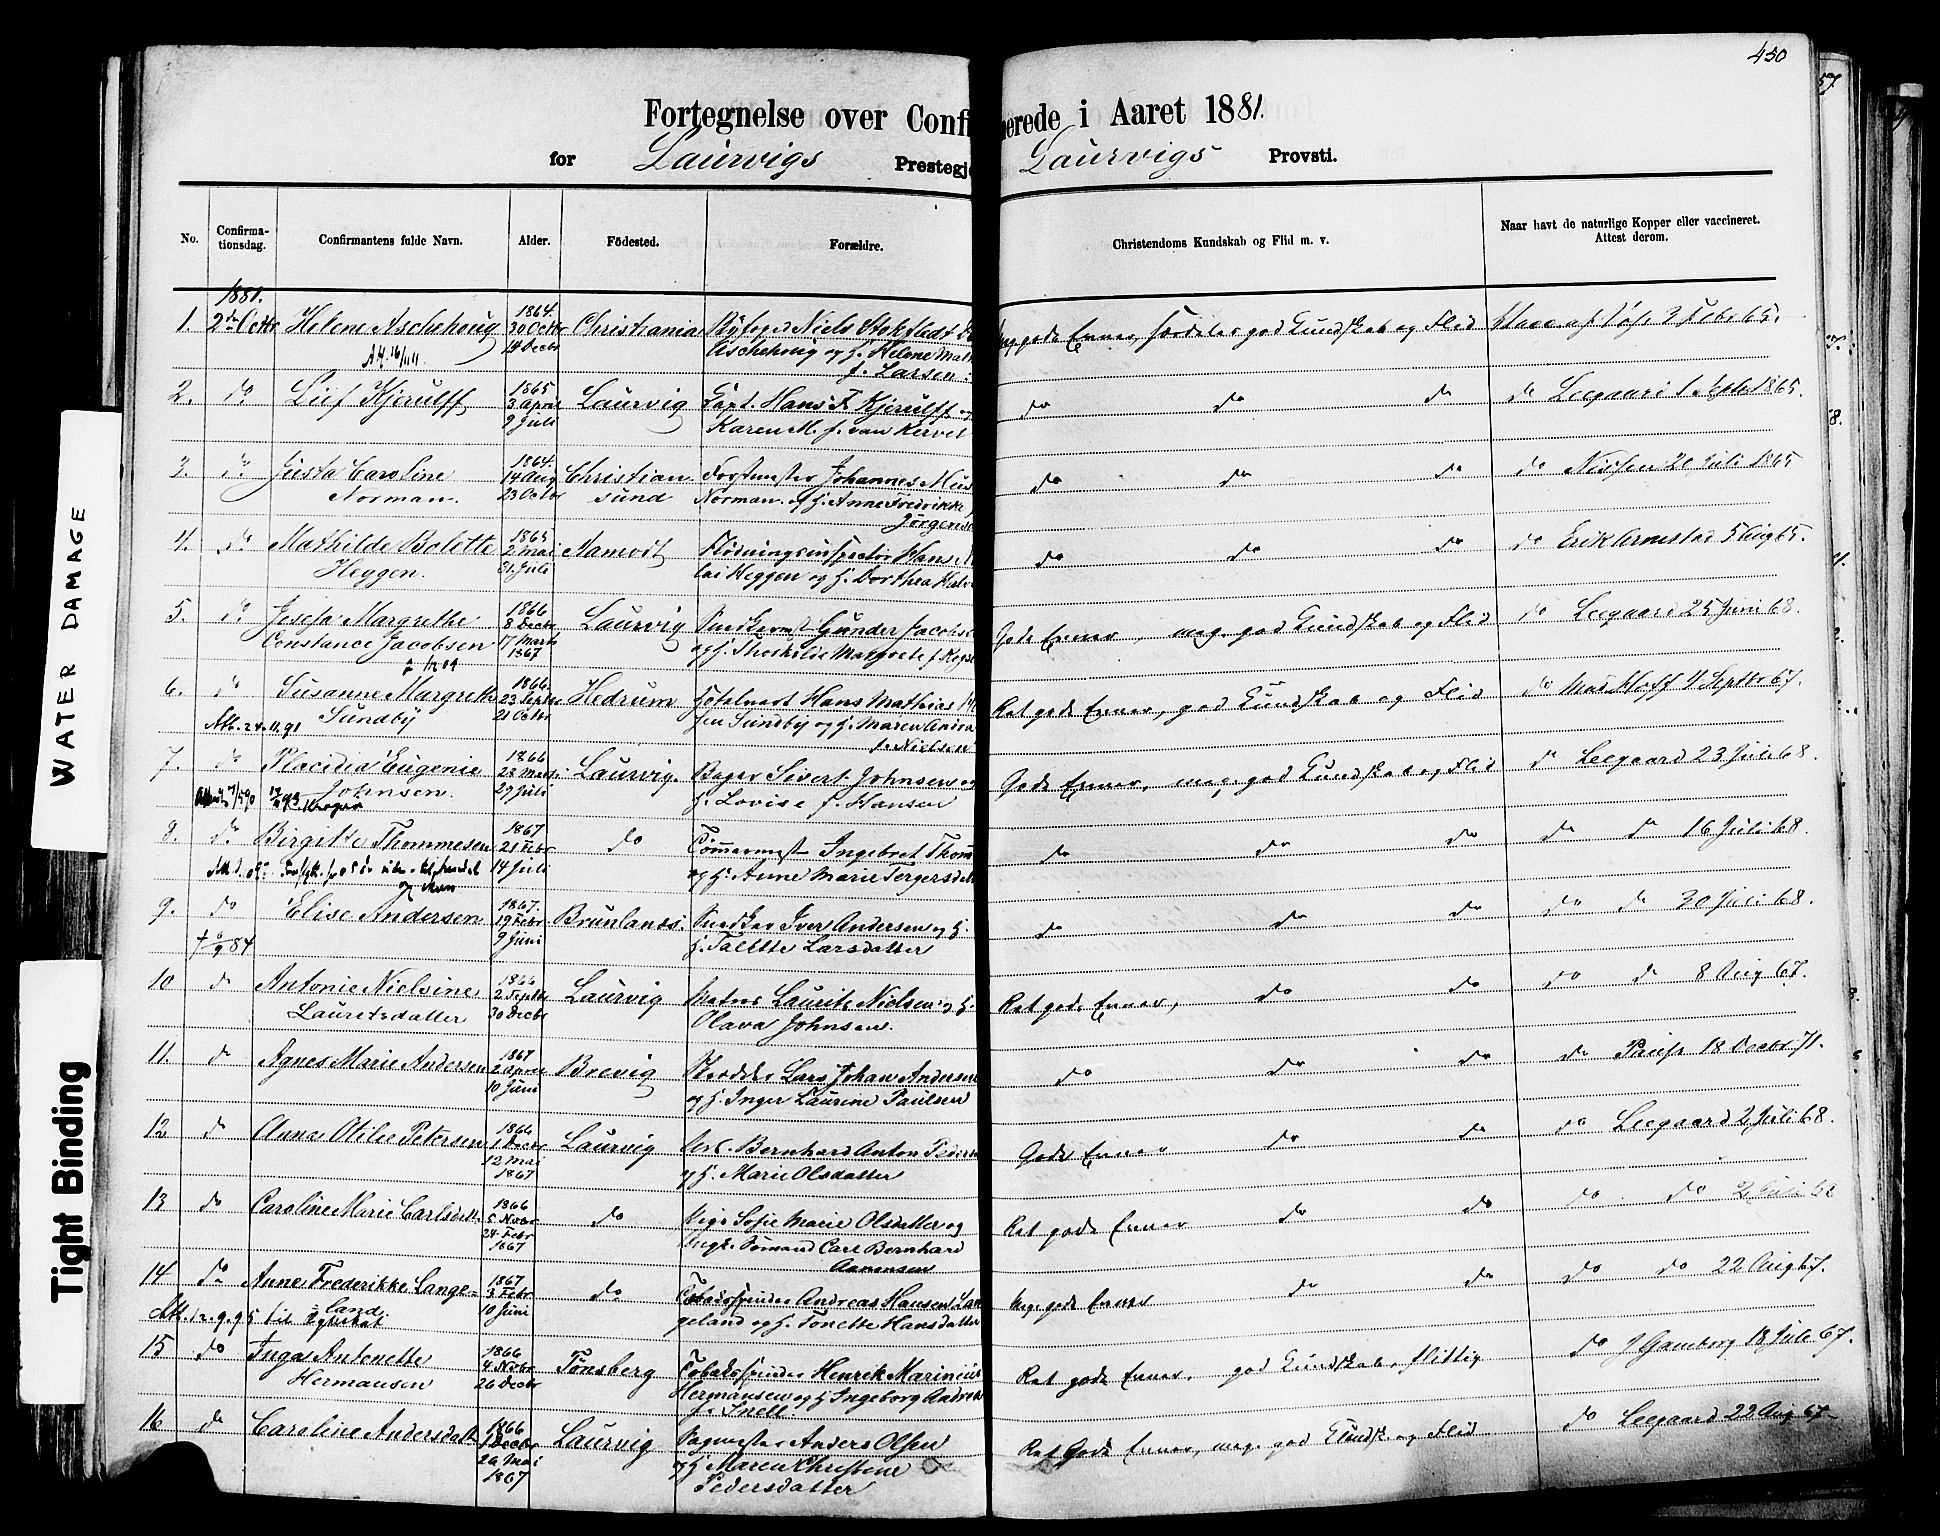 450
Fortegnelse over Confi erede i Aaret 1881.
for Laurvigs Prestegje Laurvigs Provsti.
No. Confirma-tionsdag. Confirmantens fulde Navn. Alder. Födested. Forældre. Christendoms Kundskab og Flid m. v. Naar havt de naturlige Kopper eller vaccineret. Attest derom.
1881.
1. 2den Octbr Helene Aschehoug 1864. 30 Octbr 14 Decbr Christiania Byfoged Niels Stokfledt
Aschehoug og h. Helene
f. Larsen
Meg. gode Evner, særdeles god Kundskab og Flid Vacc. af 3 Febr 65.
2. do Lief Kjerulff 1865 3 April 9 Juli Laurvig Capt. Hans F. Kjerulff og
Karen M. f. van Kervel
do do do do Leegaard 1 Septbr 1865.
3. do Justa Caroline 1864. 14 Aug 23 Octbr Christian Forstmester Johannes
Norman. sund Norman og h. Anne Fredrikke
Jörgense
do do do do Nissen 20 Juli 1865
4. do Mathilde Bolette 1865 2 Mai 31. Juli Namsos Flödningsinspector Hans
Heggen. lai Heggen og h. Dorthea
do do do do Erik Arnestad 5 Aug 65.
5. do Josefa Margrethe 1866 8 Decbr Laurvig Snedkermst Gunder Jacobse
Constance Jacobsen 17 Marts 1867 og h. Thorkilde Margrete f.
Gode Evner, meg. god Kundskab og Flid do Leegaard 25 Juni 68.
6. do Susanne Margrethe 1866. 23 Septbr Hedrum Hotelvært Hans Mathias
Att. 24.11.91 Sundby 21 Octbr sen Sundby og h. Maren Andrea
f. Nielsen
Ret gode Evner, god Kundskab og Flid do 4 Septbr 67.
7. do Placidia Eugenie 1866 23 Marts Laurvig. Bager Sivert Johnsen og
Johnsen. 29 Juli h. Lovise f. Hansen
Gode Evner, meg. god Kundskab og Flid do Leegaard 23 Juli 68.
8. do Birgitte Thommesen 1867 21 Febr 14 Juli do Tömmermst Ingebret Thom
og h. Anne Marie Tergersdatt
do do do do do 16 Juli 68.
9. do Elise Andersen 1867. 19 Febr 9 Juni Brunlanes. Snedker Iver Andersen og h.
† 6/9 84 h. Talette Larsdatter
do do do do do 30 Juli 68.
10 do Antonie Nielsine 1866 2 Septbr Laurvig Matros Laurits Nielsen og h.
Lauretsdatter 30 Decbr Olava Johnsen.
Ret gode Evner, do do do do 8 Aug 67.
11. do Agnes Marie Andersen 1867 2 April 10 Juni Brevig Skredder Lars Johan Andersen
og h. Inger Laurine Paulsen
do do do do Paus 18 Decbr 71.
12 do Anna Otilie Petersen 1866 1 Decbr Laurvig Arb. Bernhard Anton Peders
12 Mai 1867 og h. Marie Olsdatter
Gode Evner do do do Leegaard 2 Juli 68.
13 do Caroline Marie Carlsdtr. 1866 5 Novbr do Pige Sofie Marie Olsdatter og
24 Febr 1867 Ungk. Sömand Carl Bernhard
Aanensen
Ret gode Evner do do do do 2 Juli 68
14 do Anne Frederikke Lange- 1867 3 Febr do Tobaksspinder Andreas Hansen Lan
land. 10 Juni geland og h. Tonette Hansdatter
Att. 12.9.95 til
Meg. gode Evner do do do do 22 Aug 67.
15 do Inga Antonette 1866 4 Novbr Tönsberg Tobaksspinder Henrik Marinius
Hermansen 26 Decbr Hermansen og h. Ingeborg Andrea
f. Snell.
Ret gode Evner, god Kundskab, flittig do J Gamborg 18 Juli 67.
16 do Caroline Andersdatter 1866 1 Decbr Laurvig Sagmester Anders Olsen
26 Mai 1867 og h. Maren Christene
Pedersdatter
Ret Gode Evner, meg. god Kundsk. og Flid do Leegaard 22 Aug 67
WATER DAMAGE
Tight Binding